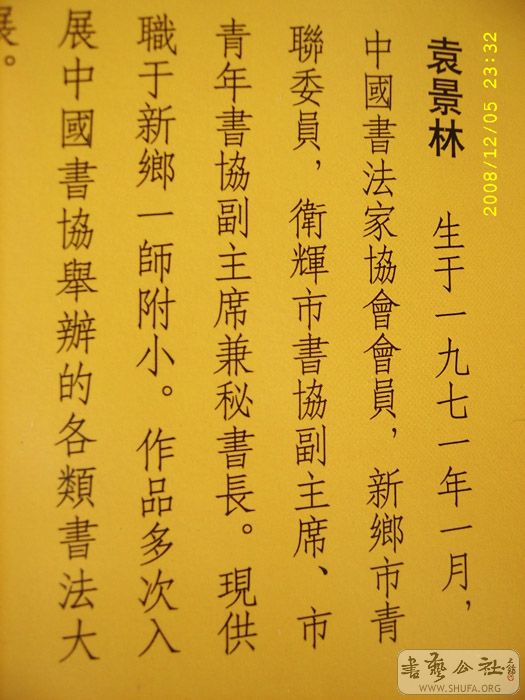 袁景林　生于一九七一年一月，
中國書法家協會會員，新鄉市青
聯委員，衛輝市書協副主席、市
青年書協副主席兼秘書長。現供
職于新鄉一師附小。作品多次入
展中國書協舉辦的各類書法大
展。
2008/12/05 23:32
書藝公社
WWW.SHUFA.ORG